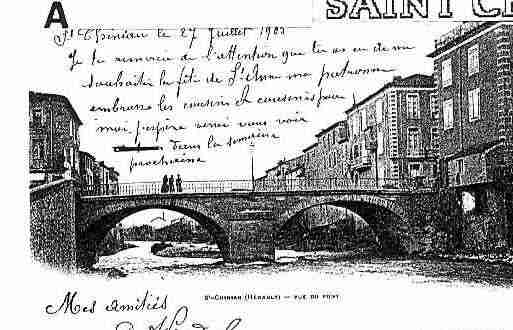 A
SAINT C
St Chinian le 27 Juillet 1903
Je te remercie de l'attention que tu as eu de me
souhaiter la fête de Ste Anne ma patronne
embrasse les cousins et cousines pour
moi j'espère venir vous voir
dans la semaine
prochaine
St-CHINIAN (HÉRAULT) — VUE DU PONT
Mes amitiés